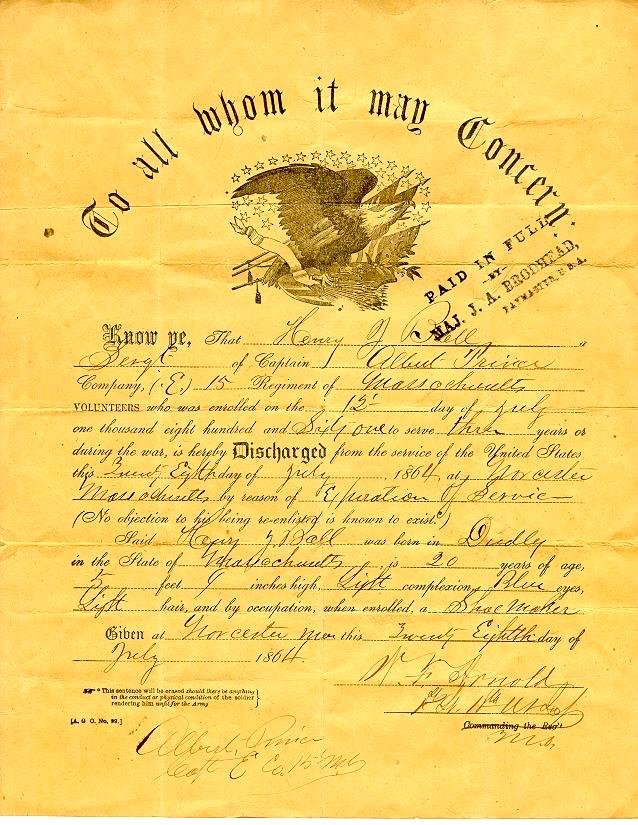 To all whom it may Concern:
PAID IN FULL
BY
MAJ. J. A. BRODHEAD,
PAYMASTER, U.S.A.
Know ye, That Henry J Ball
Sergt of Captain Albert Prince
Company, (E,) 15 Regiment of Massachusetts
VOLUNTEERS who was enrolled on the 12 day of July
one thousand eight hundred and Sixty one to serve three years or
during the war, is hereby Discharged from the service of the United States
this Twenty Eighth day of July, 1864, at Worcester
Massachusetts by reason of Expiration of Service
(No objection to his being re-enlisted is known to exist.*)
Said Henry J Ball was born in Dudley
in the State of Massachusetts, is 20 years of age,
5 feet 9 inches high, Light complexion, Blue eyes,
Light hair, and by occupation, when enrolled, a Shoe Maker
Given at Worcester Mass this Twenty Eighth day of
July 1864.
Arnold
Commanding the Reg't
* This sentence will be erased should there be anything
in the conduct or physical condition of the soldier
rendering him unfit for the Army
[A. G. O. No. 99.]
Albert Prince
Capt E Co. 15